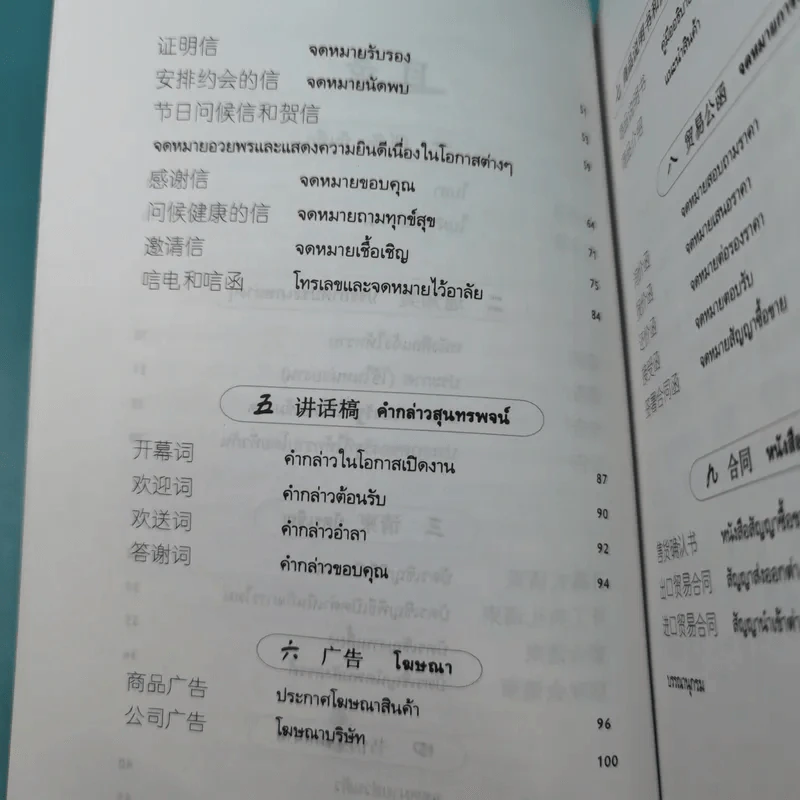 证明信 จดหมายรับรอง
安排约会的信 จดหมายนัดพบ
节日问候信和贺信 51
จดหมายอวยพรและแสดงความยินดีเนื่องในโอกาสต่างๆ
感谢信 จดหมายขอบคุณ
问候健康的信 จดหมายถามทุกข์สุข 64
邀请信 จดหมายเชื้อเชิญ 71
唁电和唁函 โทรเลขและจดหมายไว้อาลัย 75
84
五 讲话稿 คำกล่าวสุนทรพจน์
开幕词 คำกล่าวในโอกาสเปิดงาน 87
欢迎词 คำกล่าวต้อนรับ 90
欢送词 คำกล่าวอำลา 92
答谢词 คำกล่าวขอบคุณ 94
六 广告 โฆษณา
商品广告 ประกาศโฆษณาสินค้า 96
公司广告 โฆษณาบริษัท 100
แนะนำสินค้า
八 贸易公函 จดหมายการ
จดหมายสอบถามราคา
จดหมายเสนอราคา
จดหมายต่อรองราคา
接受函 จดหมายตอบรับ
签署合同函 จดหมายสัญญาซื้อขาย
九 合同 หนังสือ
售货确认书 หนังสือสัญญาซื้อขา
出口贸易合同 สัญญาส่งออกต่า
进口贸易合同 สัญญานำเข้าต่า
บรรณานุกรม